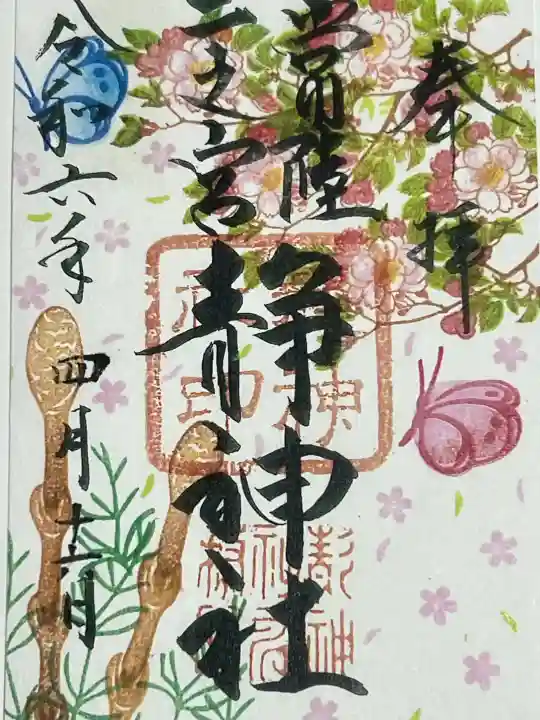 奉拝
常陸
二之宮
静神社
令和六年
四月十六日